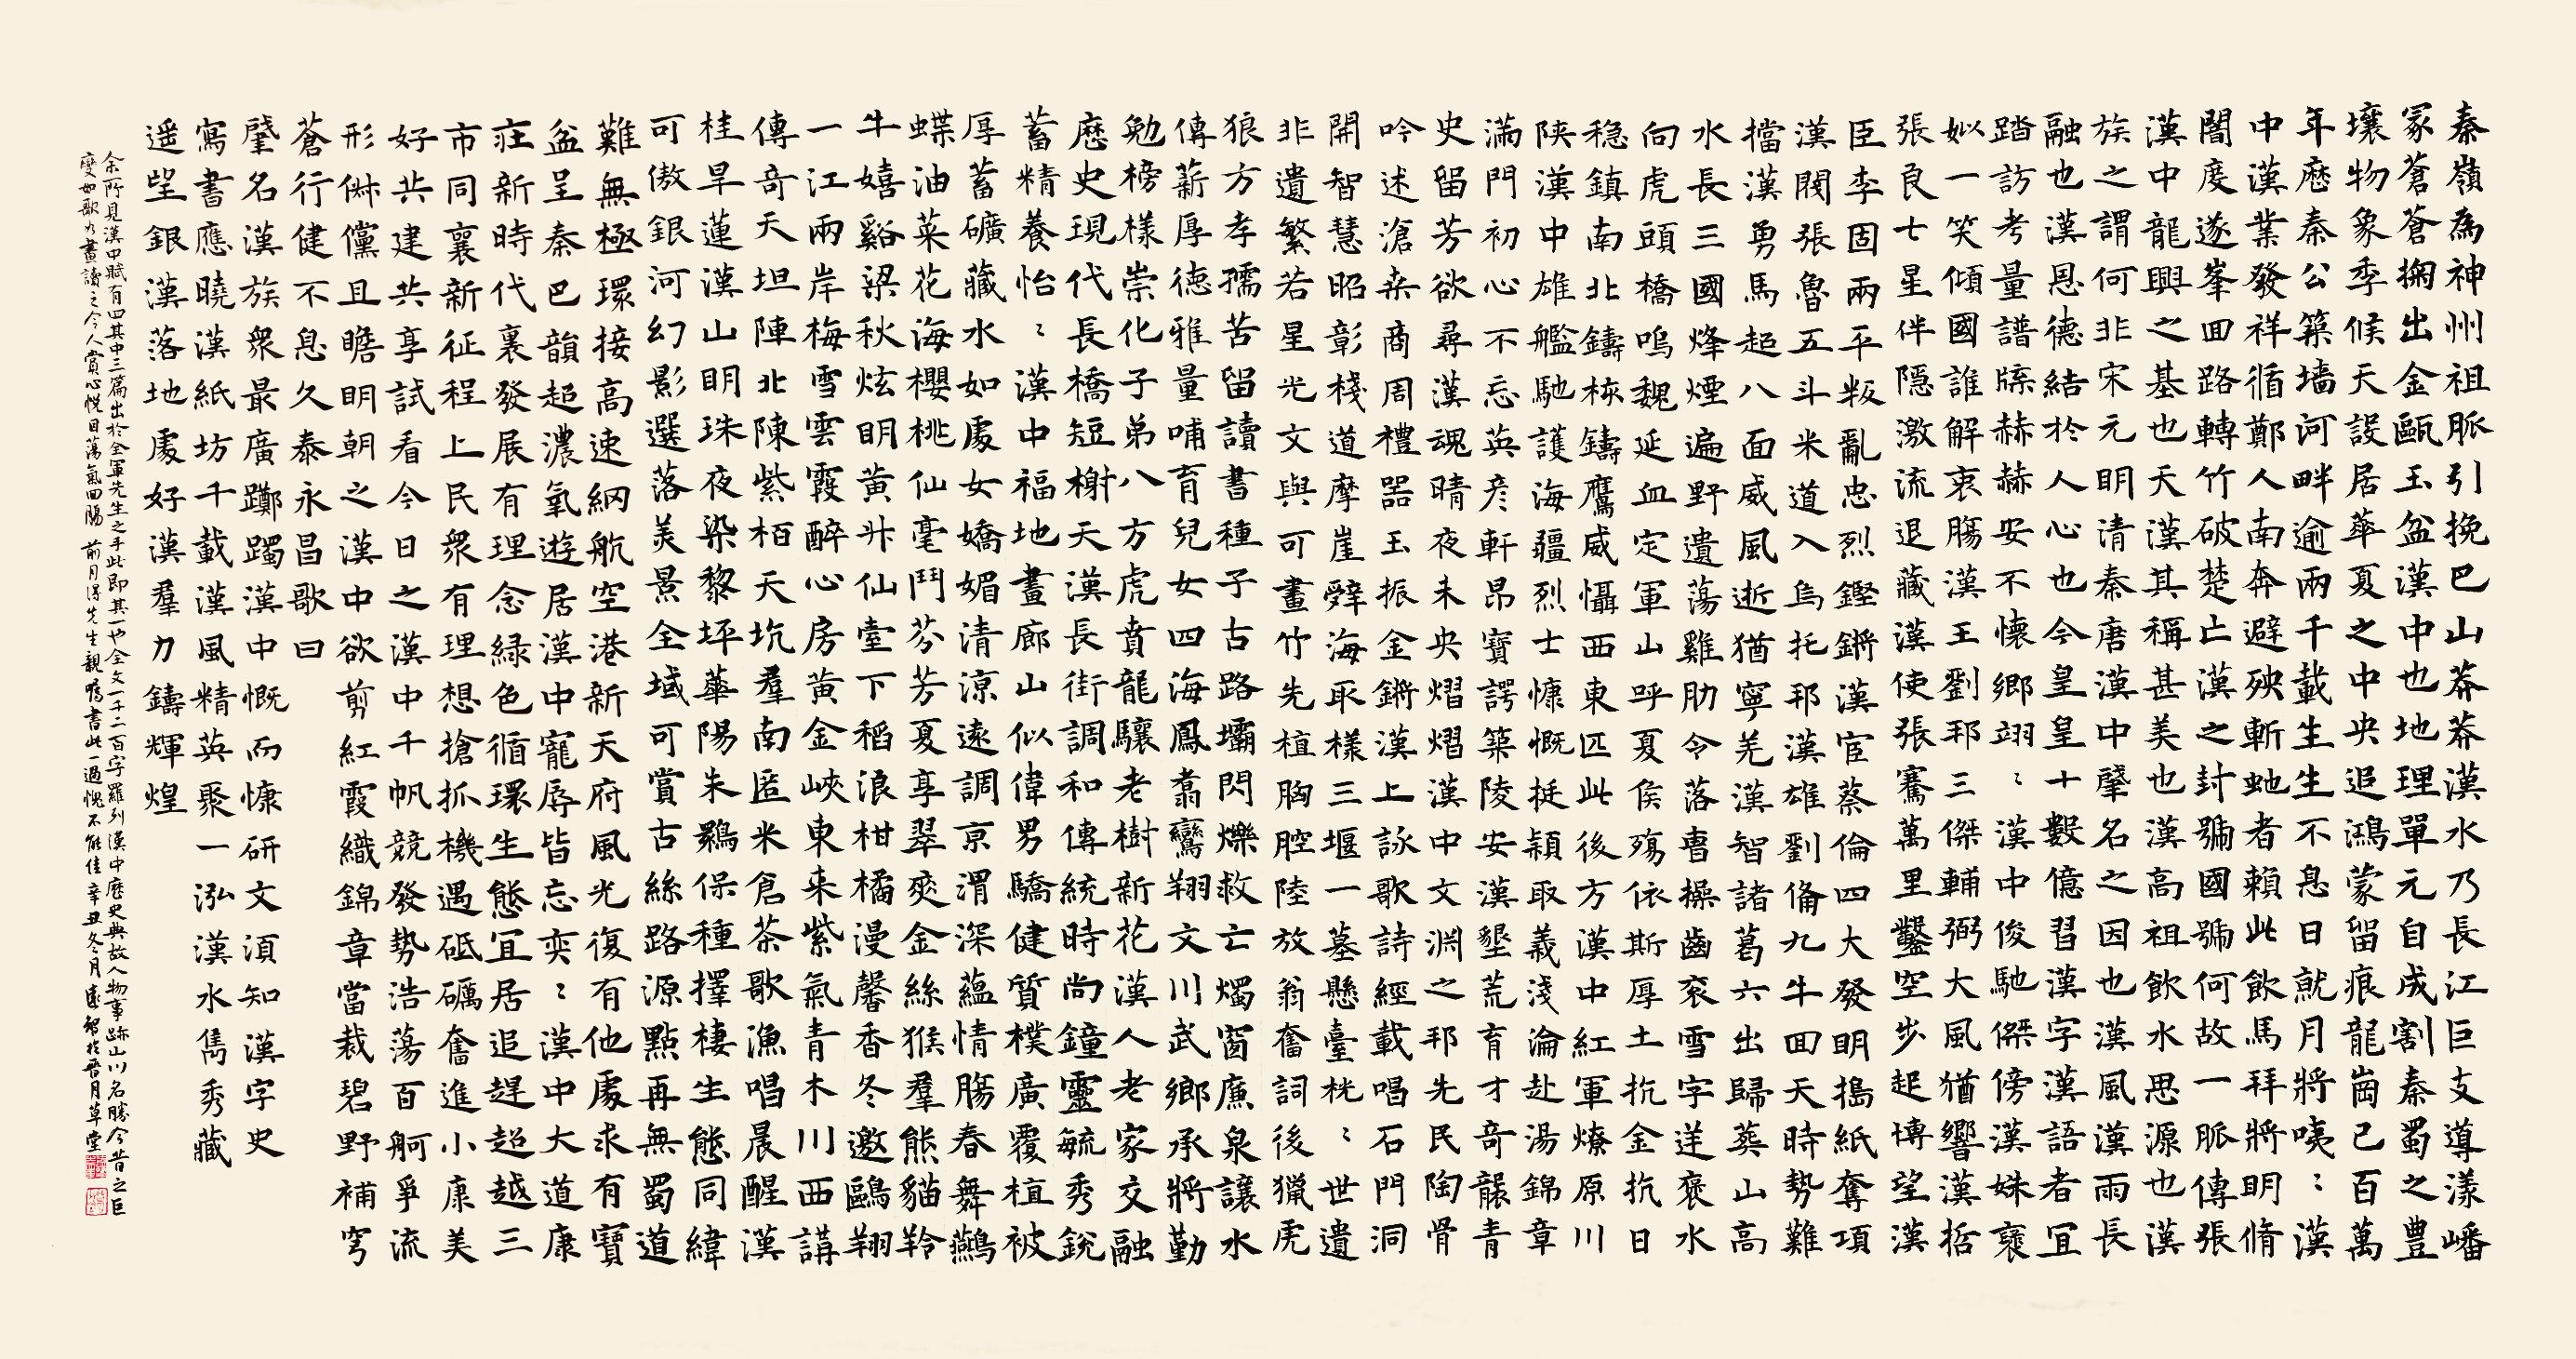 秦嶺為神州祖脈引挽巴山莽莽漢水乃長江巨支導漾嶓
冢蒼蒼掬出金甌玉盆漢中也地理單元自成割秦蜀之豐
壤物象季候天設居華夏之中央追鴻蒙留痕龍崗已百萬
年歷秦公築墙河畔逾兩千載生生不息日就月將咦：漢
中漢業發祥循鄭人南奔避殃斬虵者賴此飲馬拜將明脩
闇度遂峯回路轉竹破楚亡漢之封號國號何故一脈傳張
漢中龍興之基也天漢其稱甚美也漢高祖飲水思源也漢
族之謂何非宋元明清秦唐漢中肇名之因也漢風漢雨長
融也漢恩德結於人心也今皇皇十數億習漢字漢語者宜
踏訪考量譜牒赫赫安不懷鄉翊：漢中俊馳傑傍漢姝褒
姒一笑傾國誰解衷腸漢王劉邦三傑輔弼大風猶響漢哲
張良士星伴隱激流退藏漢使張騫萬里鑿空步起博望漢
臣李固兩平叛亂忠烈鏗鏘漢宦蔡倫四大發明搗紙奪項
漢閥張魯五斗米道入烏托邦漢雄劉俻九牛回天時勢難
擋漢勇馬超八面威風逝猶寧羌漢智諸葛六出歸葬山高
水長三國烽煙遍野遺蕩雞肋令落曹操齒袞雪字送褒水
向虎頭橋嗚魏延血定軍山呼夏侯殤依斯厚土抗金抗日
稳鎮南北鑄栋鑄鷹威懾西東匹此後方漢中紅軍燎原川
陕漢中雄艦馳護海疆烈士慷慨挺穎取義淺淪赴湯錦章
滿門初心不忘英彦軒昂寶諤築陵安漢墾荒育才奇龘青
史留芳欲尋漢魂晴夜未央熠熠漢中文渊之邦先民陶骨
吟述滄桒商周禮器玉振金鏘漢上詠歌詩經載唱石門洞
開智慧昭彰棧道摩崖辥海取樣三堰一墓懸臺桄：世遺
非遺繁若星光文與可畫竹先植胸腔陸放翁奮詞後猟虎
狼方孝孺苦留讀書種子古路壩閃爍救亡燭窗廉泉讓水
傳薪厚德雅量哺育兒女四海鳳翥鸞翔文川武鄉承將勤
勉榜樣崇化子弟八方虎賁龍驤老樹新花漢人老家交融
歷史現代長橋短榭天漢長街調和傳統時尚鐘靈毓秀銳
蓄精養怡：漢中福地畫廊山似偉男驕健質樸廣覆植被
厚蓄礦藏水如處女嬌媚清涼遠調京渭深蘊情腸春舞鷰
蝶油菜花海櫻桃仙毫鬥芬芳夏享翠爽金絲猴羣熊貓羚
牛嬉谿梁秋炫明黃升仙臺下稻浪柑橘漫馨香冬邀鷗翔
一江兩岸梅雪雲霞醉心房黃金峽東来紫氣青木川西講
傳奇天坦陣北陳紫栢天坑羣南匿米倉茶歌漁唱晨醒漢
桂旱蓮漢山明珠夜染黎坪華陽朱鹮保種擇棲生態同緯
可傲銀河幻影選落美景全域可賞古絲路源點再無蜀道
難無極環接高速網航空港新天府風光復有他處求有寶
盆呈秦巴韻超濃氧遊居漢中寵辱皆忘奕：漢中大道康
莊新時代裏發展有理念緑色循環生態宜居追趕超越三
市同襄新征程上民衆有理想搶抓機遇砥礪奮進小康美
好共建共享試看今日之漢中千帆競發勢浩蕩百舸爭流
形倂儻且瞻明朝之漢中欲剪紅霞織錦章當裁碧野補穹
蒼行健不息久泰永昌歌曰
肇名漢族衆最廣躑躅漢中慨而慷研文須知漢字史
寫書應曉漢紙坊千載漢風精英聚一泓漢水雋秀藏
遥望銀漢落地處好漢羣力鑄輝煌
余所見漢中賦有四其中三篇出於全軍先生之手此即其一也全文一千二百字羅列漢中歷史典故人物事跡山川名勝今昔之巨
變如歌如畫讀之令人賞心悦目蕩氣回腸 前月得先生親囑書此一過愧不能佳辛丑冬月 於 月草堂